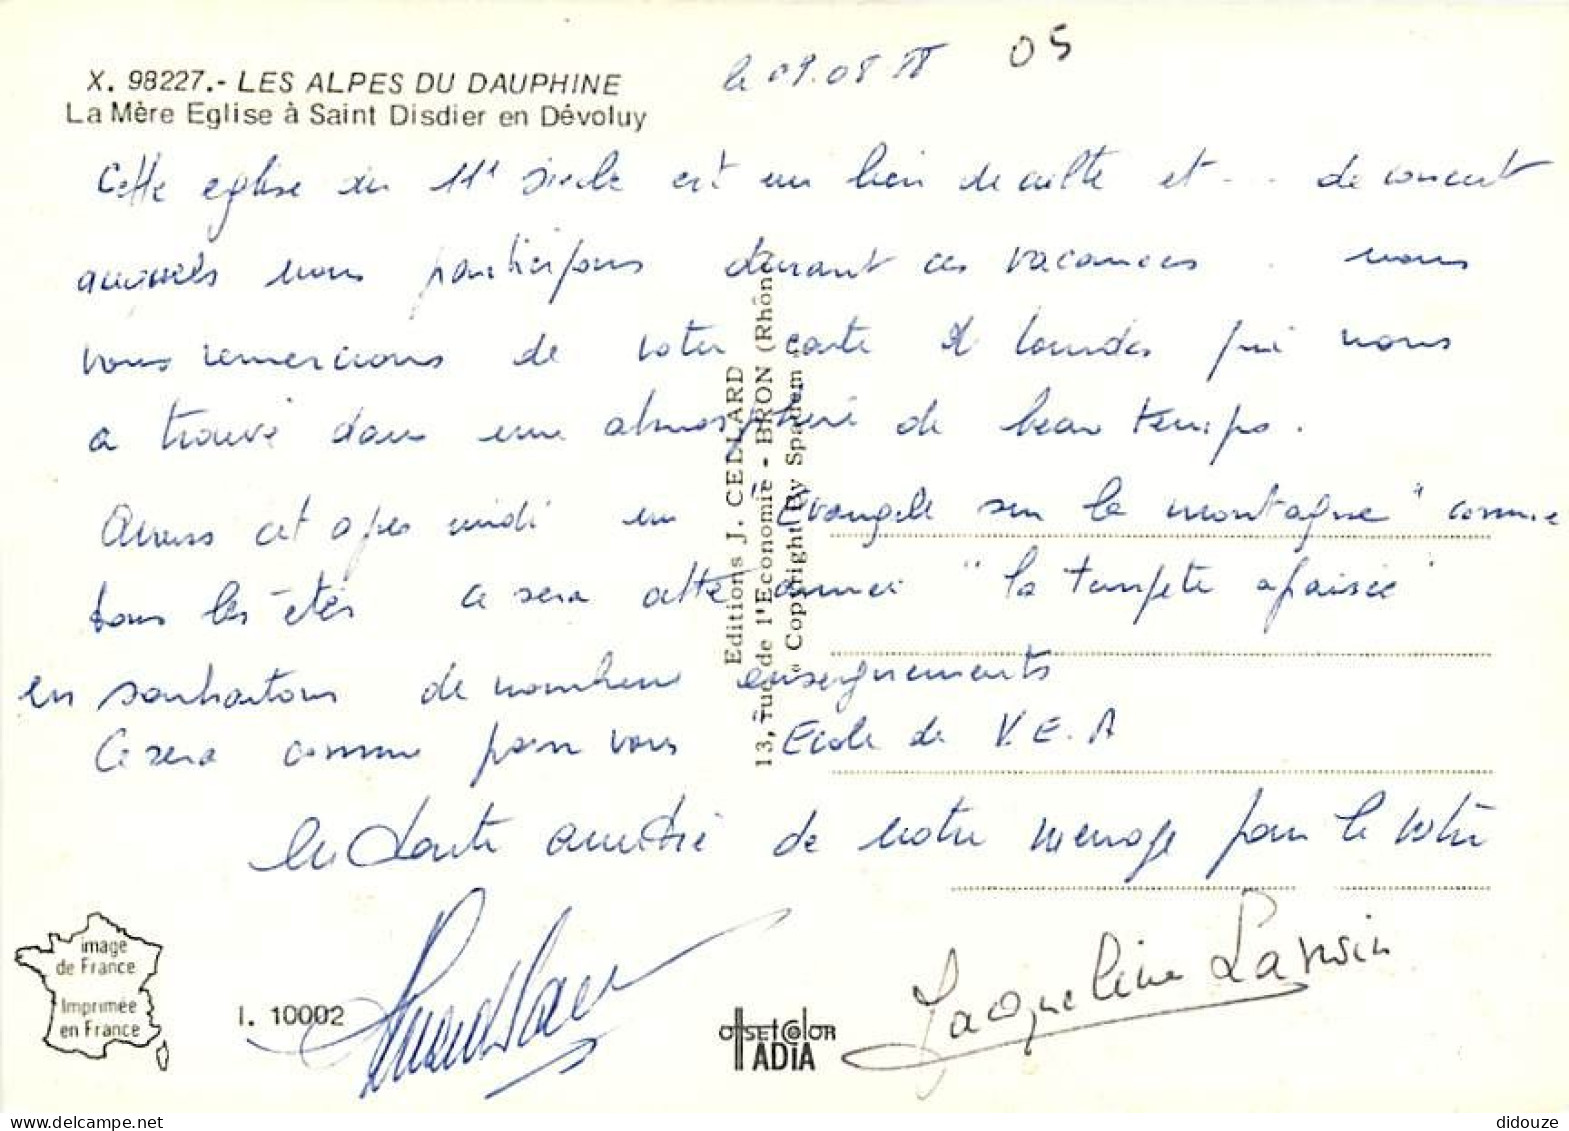 X. 98227.- LES ALPES DU DAUPHINE
La Mère Eglise à Saint Disdier en Dévoluy
le 09.08
05
Cette eglise du 11e siecle est un lieu de culte et ... de concert
auxquels nous participons durant ces vacances. nous
vous remercions de votre carte de Lourdes qui nous
a trouvé dans une atmosphère de beau temps.
cet apres midi un "Evangile sur la montagne" comme
tous les étés ce sera cette année "la tempete apaisée"
en souhaitons de nombreux enseignements
Ce sera comme pour vous Ecole de V.E.A
amitié de notre menage pour le votre
Jacqueline
Editions J. CELLARD
13, rue de l'Economie - BRON (Rhône)
" Copyright By Spadem "
image
de France
Imprimée
en France
I. 10002
OFFSET COLOR
ADIA
didouze